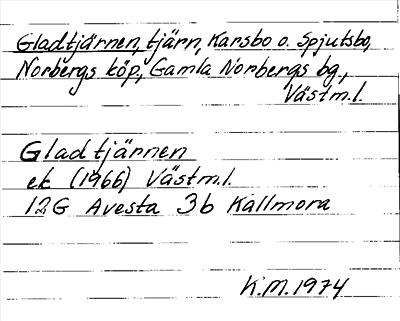 Gladtjärnen, tjärn, Karsbo o. Spjutsbo,
Norbergs köp, Gamla Norbergs bg,
Västm.l.
Gladtjärnen
ek (1966) Västm.l.
12G Avesta 3b Kallmora
K.M. 1974